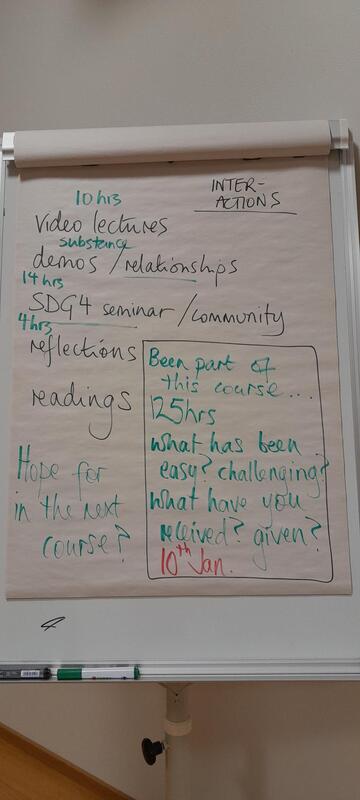 10 hrs
INTER-
ACTIONS
video lectures
substance
demos / relationships
14 hrs
SDG4 seminar / community
4 hrs
reflections
readings
Hope for
in the next
course?
Been part of
this course...
125hrs
what has been
easy? challenging?
what have you
received? given?
10th Jan.